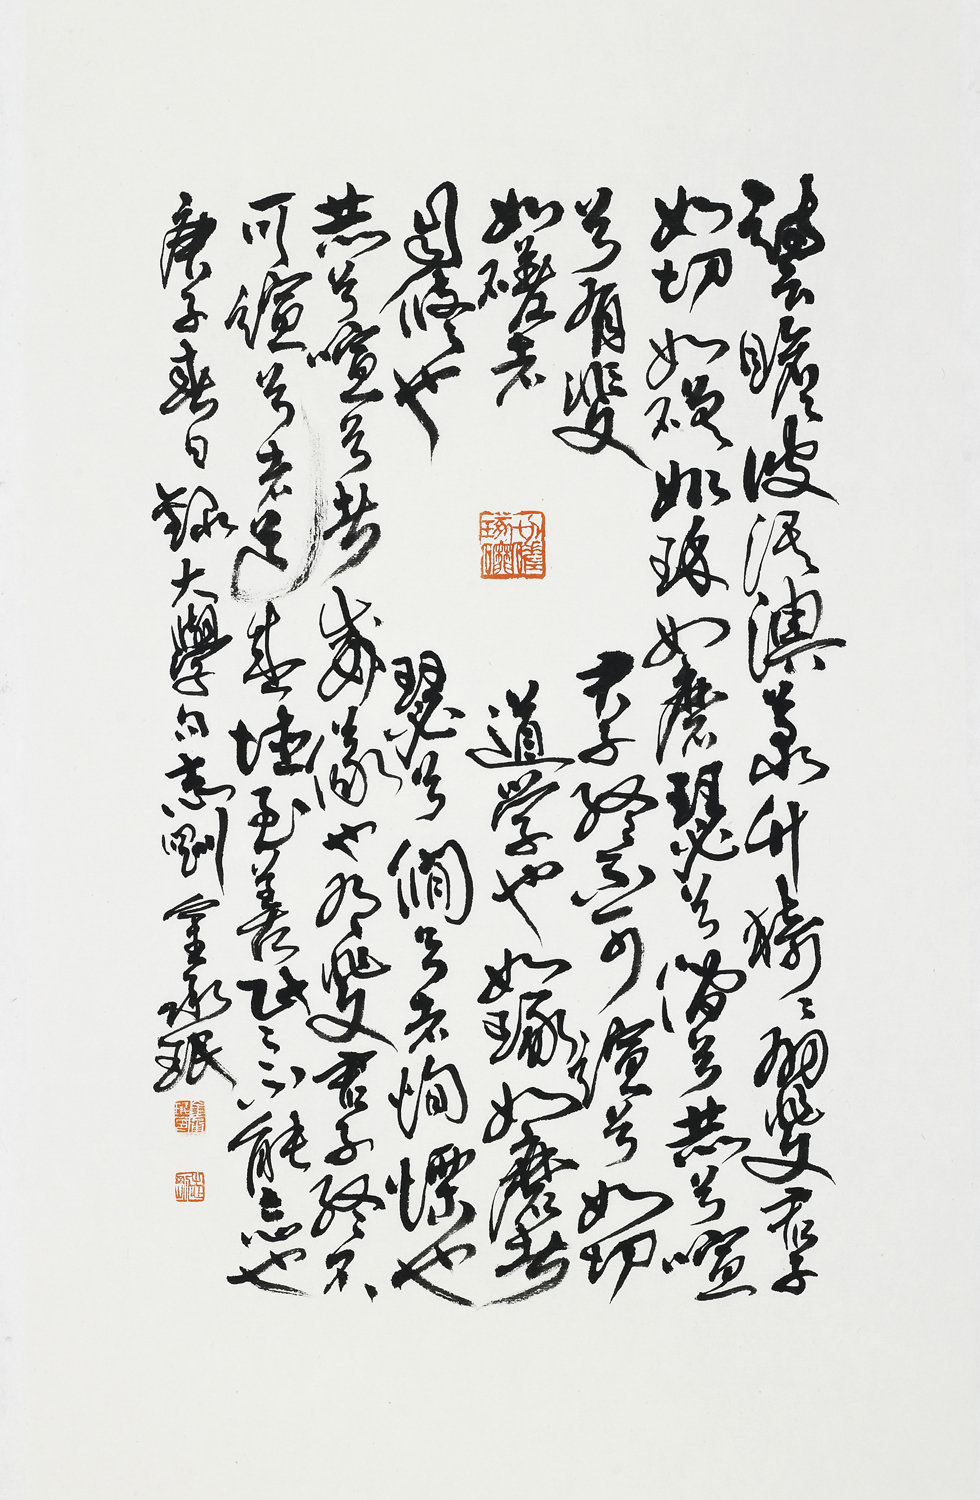 詩云瞻彼淇澳菉竹猗〻有斐君子
如切如磋如琢如磨瑟兮僩兮赫兮喧
兮有斐君子終不可諠兮如切
如磋者道学也如琢如磨者
自修也瑟兮僩兮者恂慄也
赫兮喧兮者威儀也有斐君子終不
可諠兮者道盛德至善民之不能忘也
庚子春日録大學句志剛金承珉